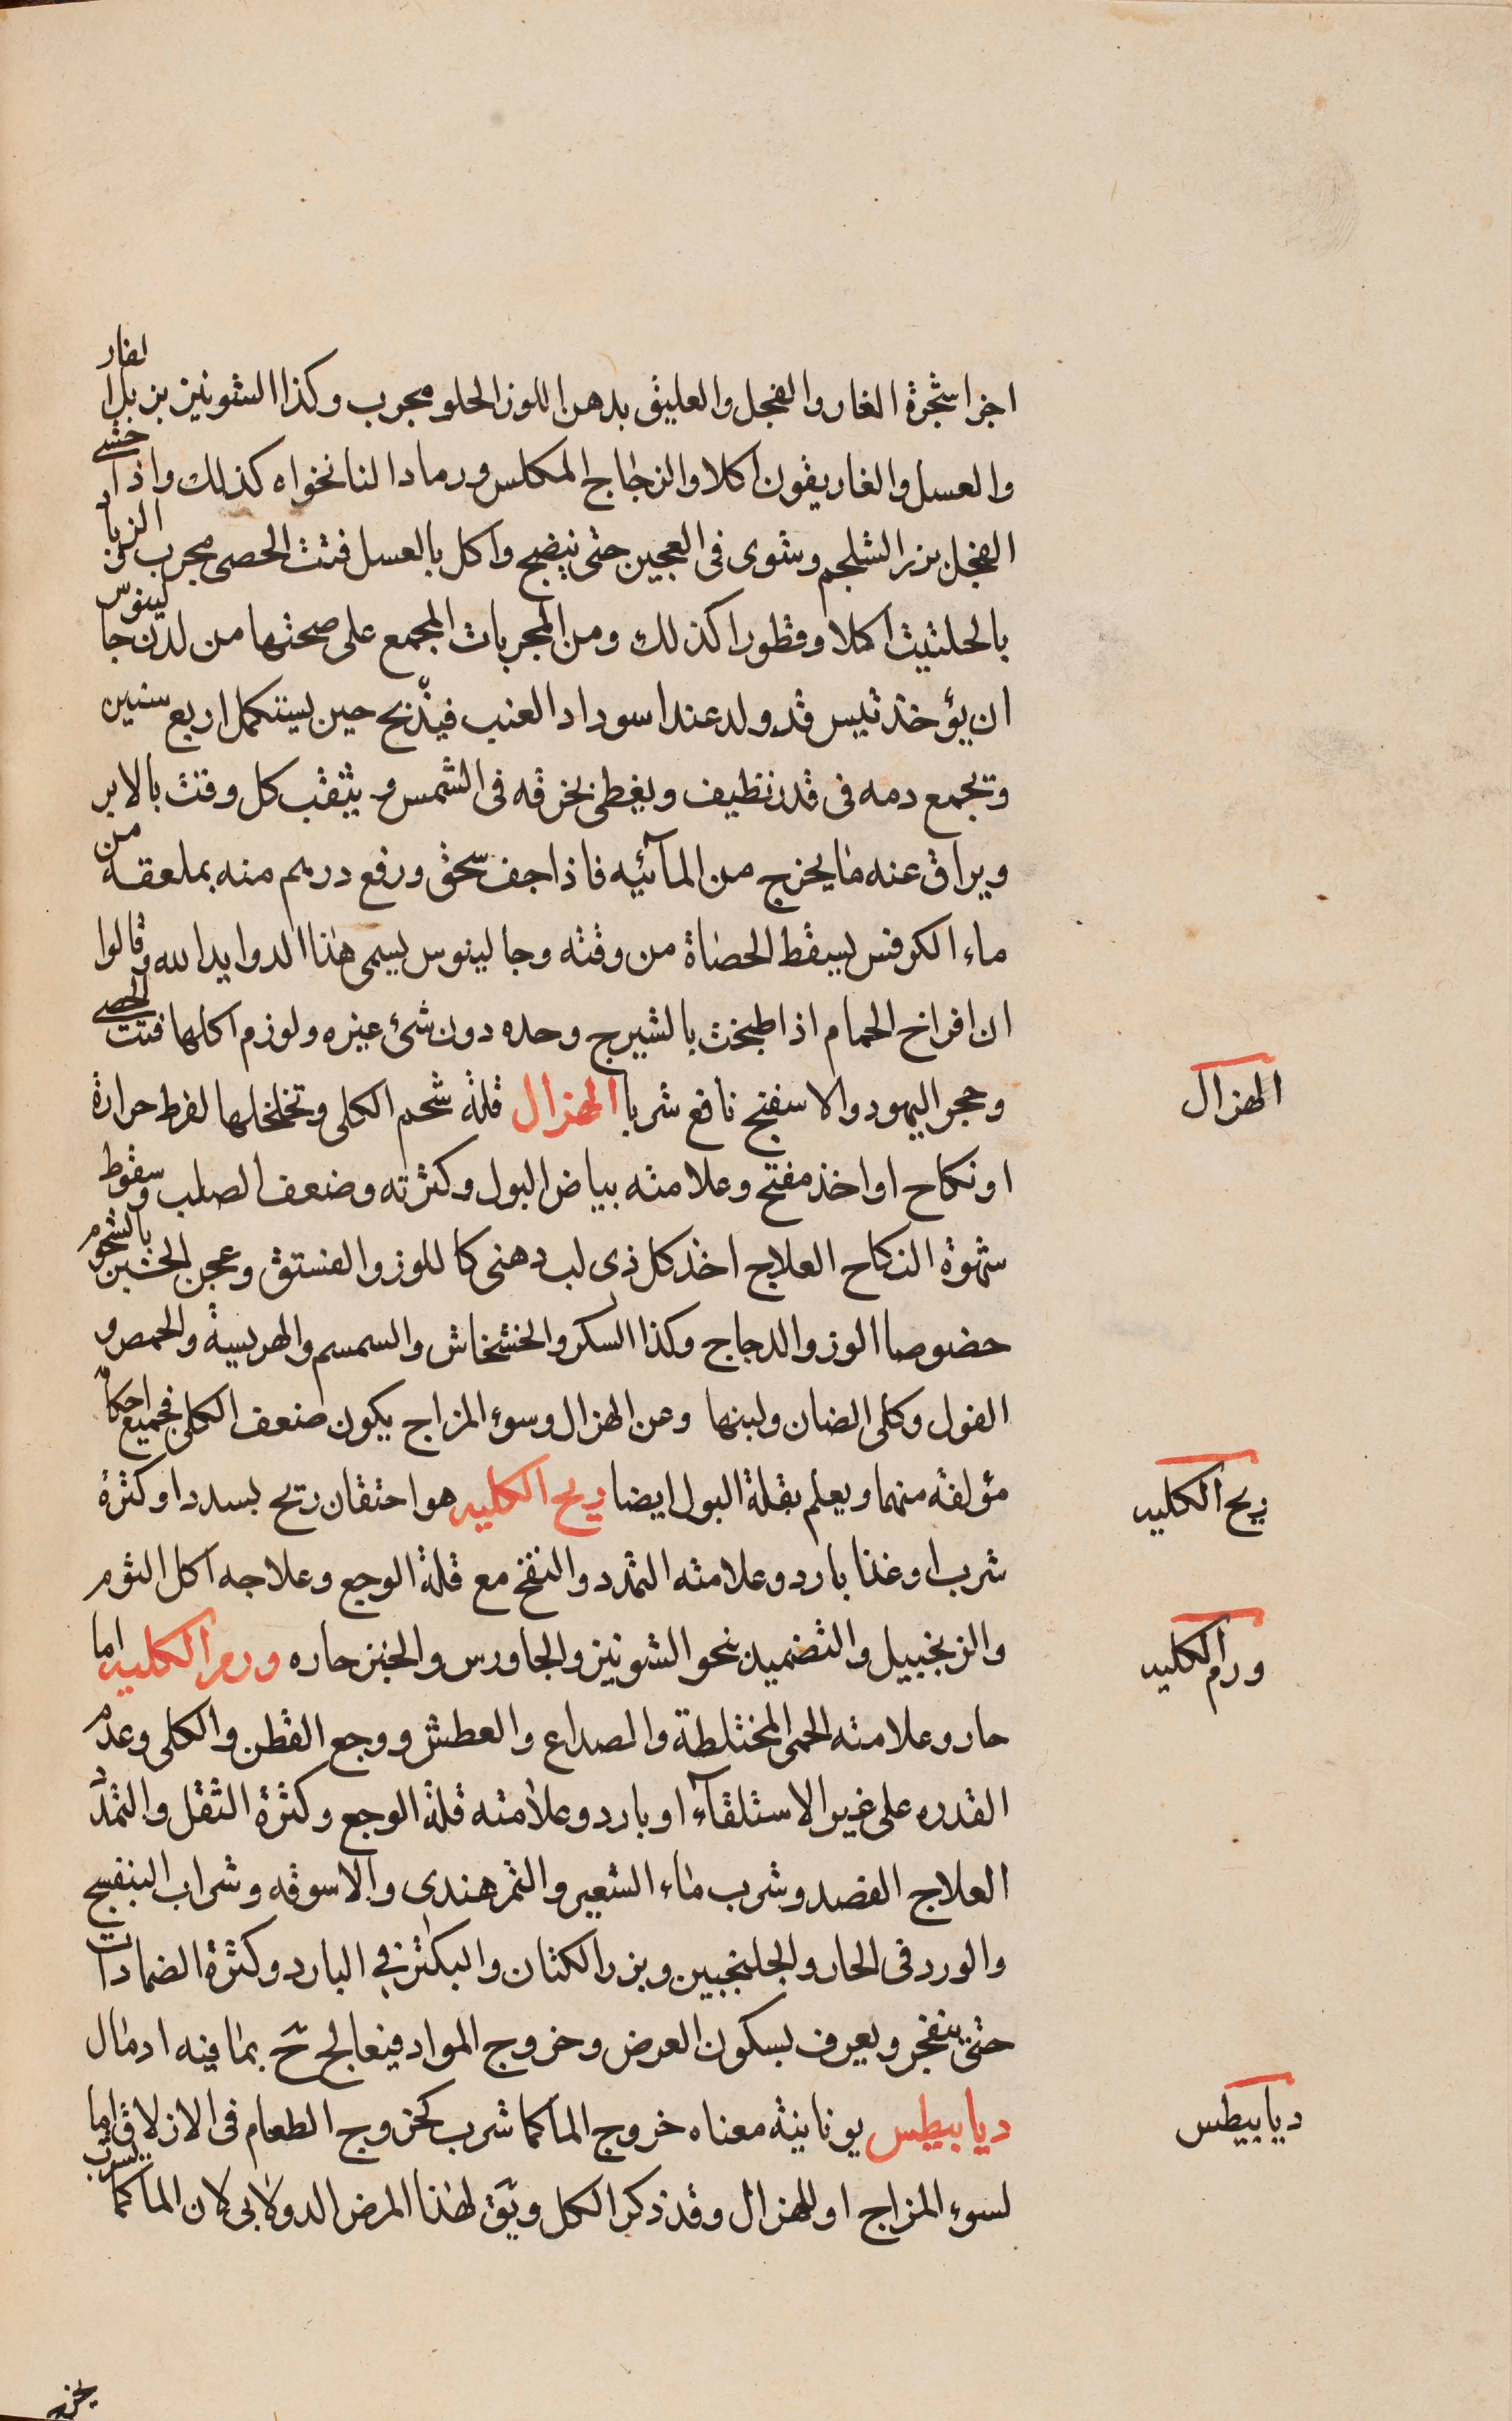 اجزا شجرة الغار والفجل والعليق بدهن اللوز الحلو مجرب وكذا الشونيز بزبل الفار
والعسل والغاريقون اكلا والزجاج المكلس ورماد النانخواه كذلك واذا حشى
الفجل بزر الشلجم وشوى فى العجين حتى ينضج واكل بالعسل فتت الحصى مجرب الزباد
بالحلتيت اكلا وقطورا كذلك ومن المجربات المجمع على صحتها من لدن جالينوس
ان يؤخذ تيس قد ولد عند اسوداد العنب فيذبح حين يستكمل اربع سنين
وتجمع دمه فى قدر نظيف ويغطى بخرقه فى الشمس ويثقب كل وقت بالابر
ويراق عنه ما يخرج من المآئيه فاذا جف سحق ورفع درهم منه بملعقه من
ماء الكرفس يسقط الحصاة من وقته وجالينوس يسمى هذا الدوا يد الله وقالوا
ان افراخ الحمام اذا طبخت بالشيرج وحده دون شئ غيره ولوزم اكلها فتت الحصى
وحجر اليهود والاسفنج نافع شربا الهزال قلة شحم الكلى وتخلخلها لفرط حرارة
الهزال
او نكاح او اخذ مفتح وعلامته بياض البول وكثرته وضعف الصلب وسقوط
شهوة النكاح العلاج اخذ كل ذى لب دهنى كاللوز والفستق وعجن الخبز بالشحوم
خصوصا الوز والدجاج وكذا السكر والخشخاش والسمسم والهريسة والحمص و
الفول وكلى الضان ولبنها وعن الهزال وسوء المزاج يكون ضعف الكلى فجميع احكامه
مؤلفة منهما ويعلم بقلة البول ايضا ريح الكليه هو احتقان ريح بسدد او كثرة
ريح الكليه
شرب او غذا بارد وعلامته التمدد والنفخ مع قلة الوجع وعلاجه اكل الثوم
والزنجبيل والتضميد بنحو الشونيز والجاورس والخبز حاره ورم الكليه اما
ورم الكليه
حار وعلامته الحمى المختلطة والصداع والعطش ووجع القطن والكلى وعدم
القدره على غير الاستلقآء او بارد وعلامته قلة الوجع وكثرة الثقل والتمدد
العلاج الفصد وشرب ماء الشعير والتمر هندى والاسوقه وشراب البنفسج
والورد فى الحار والجلنجبين وبزر الكتان والبكتر فى البارد وكثرة الضمادات
حتى ينفجر ويعرف بسكون العرض وخروج المواد فيعالج ح بما فيه ادمال
ديابيطس يونانية معناه خروج الما كما شرب كخروج الطعام فى الازلاق اما
ديابيطس
لسوء المزاج او للهزال وقد ذكر الكل ويق لهذا المرض الدولابى لان الما كما يشرب
يخرج